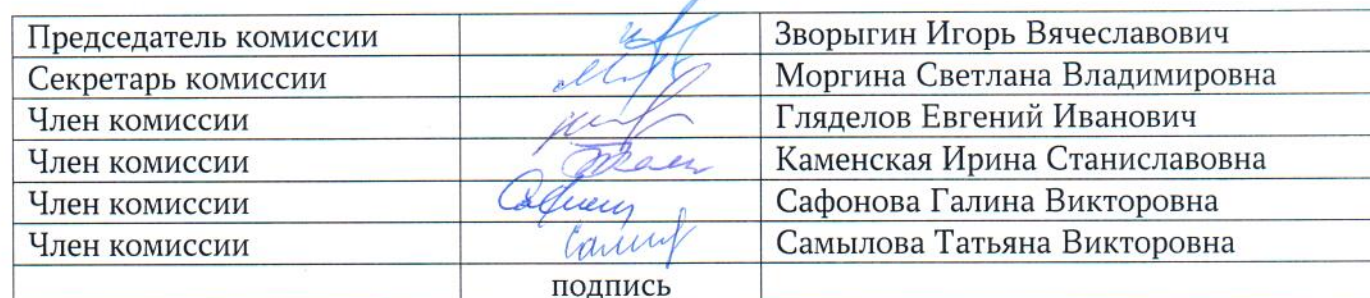 Председатель комиссии Зворыгин Игорь Вячеславович
Секретарь комиссии Моргина Светлана Владимировна
Член комиссии Гляделов Евгений Иванович
Член комиссии Каменская Ирина Станиславовна
Член комиссии Сафонова Галина Викторовна
Член комиссии Самылова Татьяна Викторовна
подпись